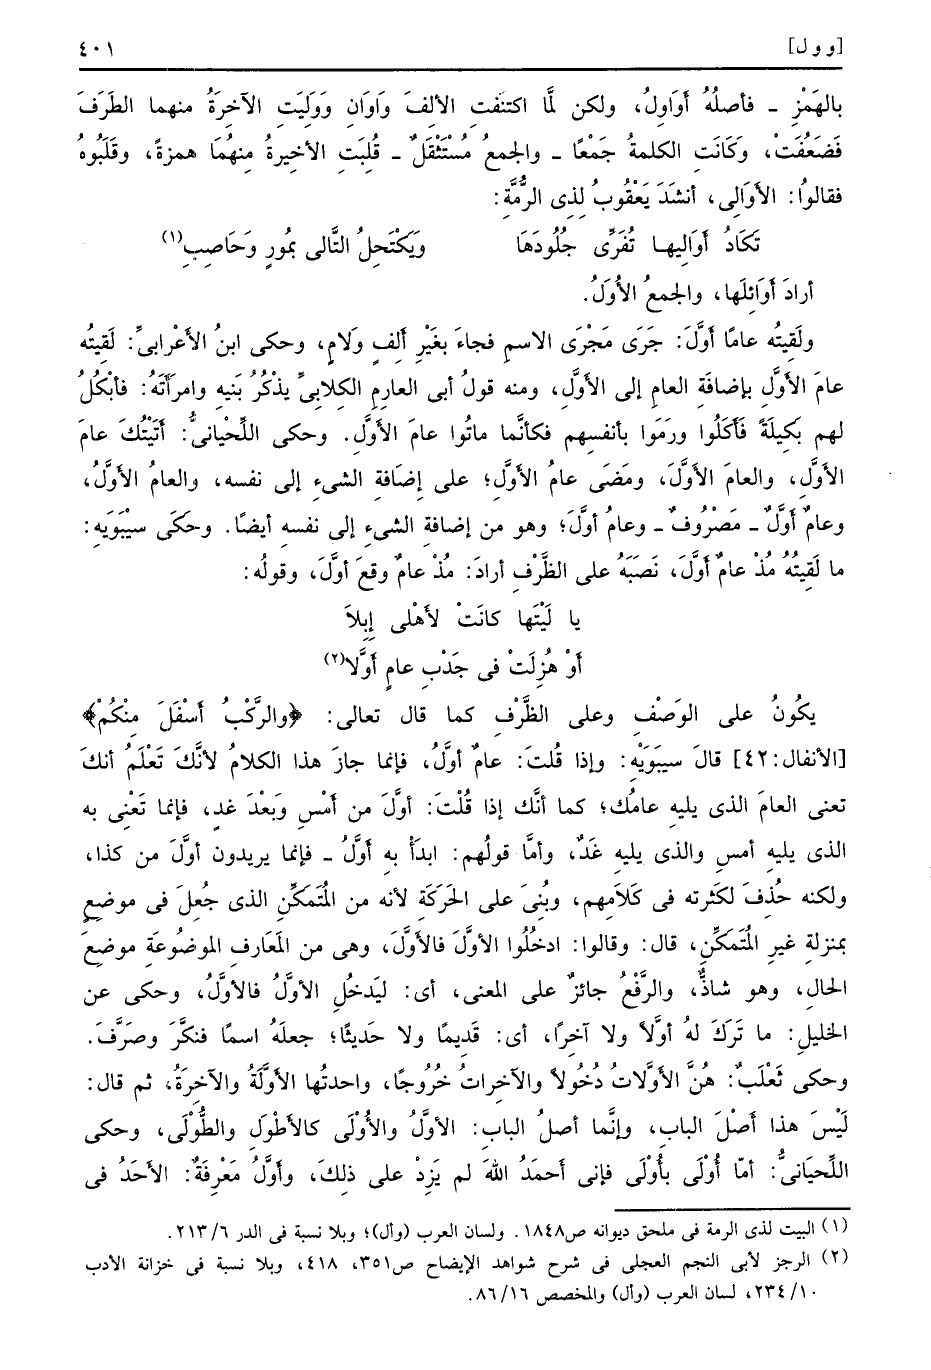 [وول] ٤٠١
بالهَمْزِ ـ فأصلُهُ أَوَاوِلُ، ولكن لمَّا اكتنَفت الألفَ وَاوَانِ وَوَلِيَتِ الآخِرَةُ منهما الطَرَفَ
فَضَعُفَتْ، وَكَانَتِ الكلمةُ جَمْعًا ـ والجمعُ مُسْتَثْقَلٌ ـ قُلِبَتِ الأخيرةُ منهُمَا همزةً، وقلَبُوهُ
فقالوُا: الأَوَالِى، أنشَدَ يَعْقُوبُ لِذِى الرُّمَّةِ:
تَكَادُ أَوَالِيهـا تُفَرِّى جُلُودَهَا وَيَكْتَحِلُ التَّالِى بِمُورٍ وَحَاصِبِ(١)
أرادَ أَوَائلَها، والجمعُ الأُوَلُ.
ولَقِيتُه عامًا أوَّلَ: جَرَى مَجْرَى الاسمِ فجاءَ بغَيْرِ ألِفٍ ولَامٍ، وحكى ابنُ الأَعْرابىِّ: لَقِيتُه
عامَ الأوَّلِ بإضافَةِ العامِ إلى الأوَّلِ، ومنه قولُ أبى العارِمِ الكلابىِّ يذْكُرُ بَنِيه وامرأَتَهُ: فأبْكُلُ
لهم بَكِيلَةً فَأَكَلُوا ورَمَوا بأنفسهم فكأنَّما ماتُوا عامَ الأوَّلِ. وحكى اللِّحْيانىُّ: أَتَيْتُكَ عامَ
الأوَّلِ، والعامَ الأوَّلَ، ومَضَى عامُ الأوَّلِ؛ على إضَافةِ الشىءِ إلى نفسه، والعامُ الأوَّلُ،
وعامٌ أوَّلٌ ـ مَصْرُوفٌ ـ وعامُ أوَّلَ؛ وهو من إضافة الشىءِ إلى نفسِهِ أيضًا. وحَكَى سيْبَوَيهِ:
ما لَقِيتُهُ مُذْ عامٌ أوَّلَ، نَصَبَهُ على الظَّرْفِ أرادَ: مُذْ عامٌ وقعَ أوَّلَ، وقولُه:
يا لَيْتَها كانَتْ لأَهْلِى إِبِلاَ
أَوْ هُزِلَتْ فى جَدْبِ عامٍ أَوَّلا(٢)
يكُونُ على الوَصْفِ وعلى الظَّرْفِ كما قال تعالى: ﴿والرَّكْبُ أَسْفَلَ مِنكُمْ﴾
[الأنفال:٤٢] قالَ سيبَوَيْهِ: وإذا قُلتَ: عامٌ أوَّلُ، فإنما جازَ هذا الكلامُ لأنَّكَ تَعْلَم أنكَ
تعنى العامَ الذى يليه عامُك؛ كما أنَّك إذا قُلْتَ: أوَّلَ من أمْسِ وبَعْدَ غدٍ، فإنما تَعْنِى به
الذى يليه أمسِ والذى يليه غَدٌ، وأمَّا قولُهم: ابدأْ به أوَّلُ ـ فإنما يريدون أوَّلَ من كذا،
ولكنه حُذفَ لكَثرته فى كَلاَمِهم، وبُنِىَ على الحَرَكَة لأنه من المُتَمَكِّنِ الذى جُعِلَ فى موضعٍ
بمنزلة غيرِ المُتَمَكِّنِ، قال: وقالوا: ادخُلُوا الأوَّلَ فالأوَّلَ، وهى من المَعَارف الموضُوعَة موضعَ
الحالِ، وهو شاذٌّ، والرَّفْعُ جائزٌ على المعنى، أى: ليَدخُلِ الأوَّلُ فالأوَّلُ، وحكى عن
الخليل: ما تَرَكَ له أوَّلاً ولا آخِرًا، أى: قَديمًا ولا حَديثًا؛ جعلَهُ اسمًا فنكَّرَ وصرَّفَ.
وحكى ثَعْلَبٌ: هُنَّ الأوَّلاتُ دُخُولاً والآخِراتُ خُرُوجًا، واحدتُها الأوَّلَةُ والآخِرَةُ، ثم قال:
لَيْسَ هذا أَصْلَ البابِ، وإنَّما أصلُ البابِ: الأوَّلُ والأُوْلَى كالأَطْوَلِ والطُّوْلَى، وحكى
اللِّحيانىُّ: أمَّا أُوْلَى بأُوْلَى فإنى أحمَدُ اللهَ لم يَزِدْ على ذلِكَ، وأوَّلُ مَعْرِفَةٌ: الأحَدُ فى
(١) البيت لذى الرمة فى ملحق ديوانه ص١٨٤٨. ولسان العرب (وأل)؛ وبلا نسبة فى الدر ٢١٣/٦.
(٢) الرجز لأبى النجم العجلى فى شرح شواهد الإيضاح ص٣٥١، ٤١٨، وبلا نسبة فى خزانة الأدب
٢٣٤/١٠، لسان العرب (وأل) والمخصص ٨٦/١٦.